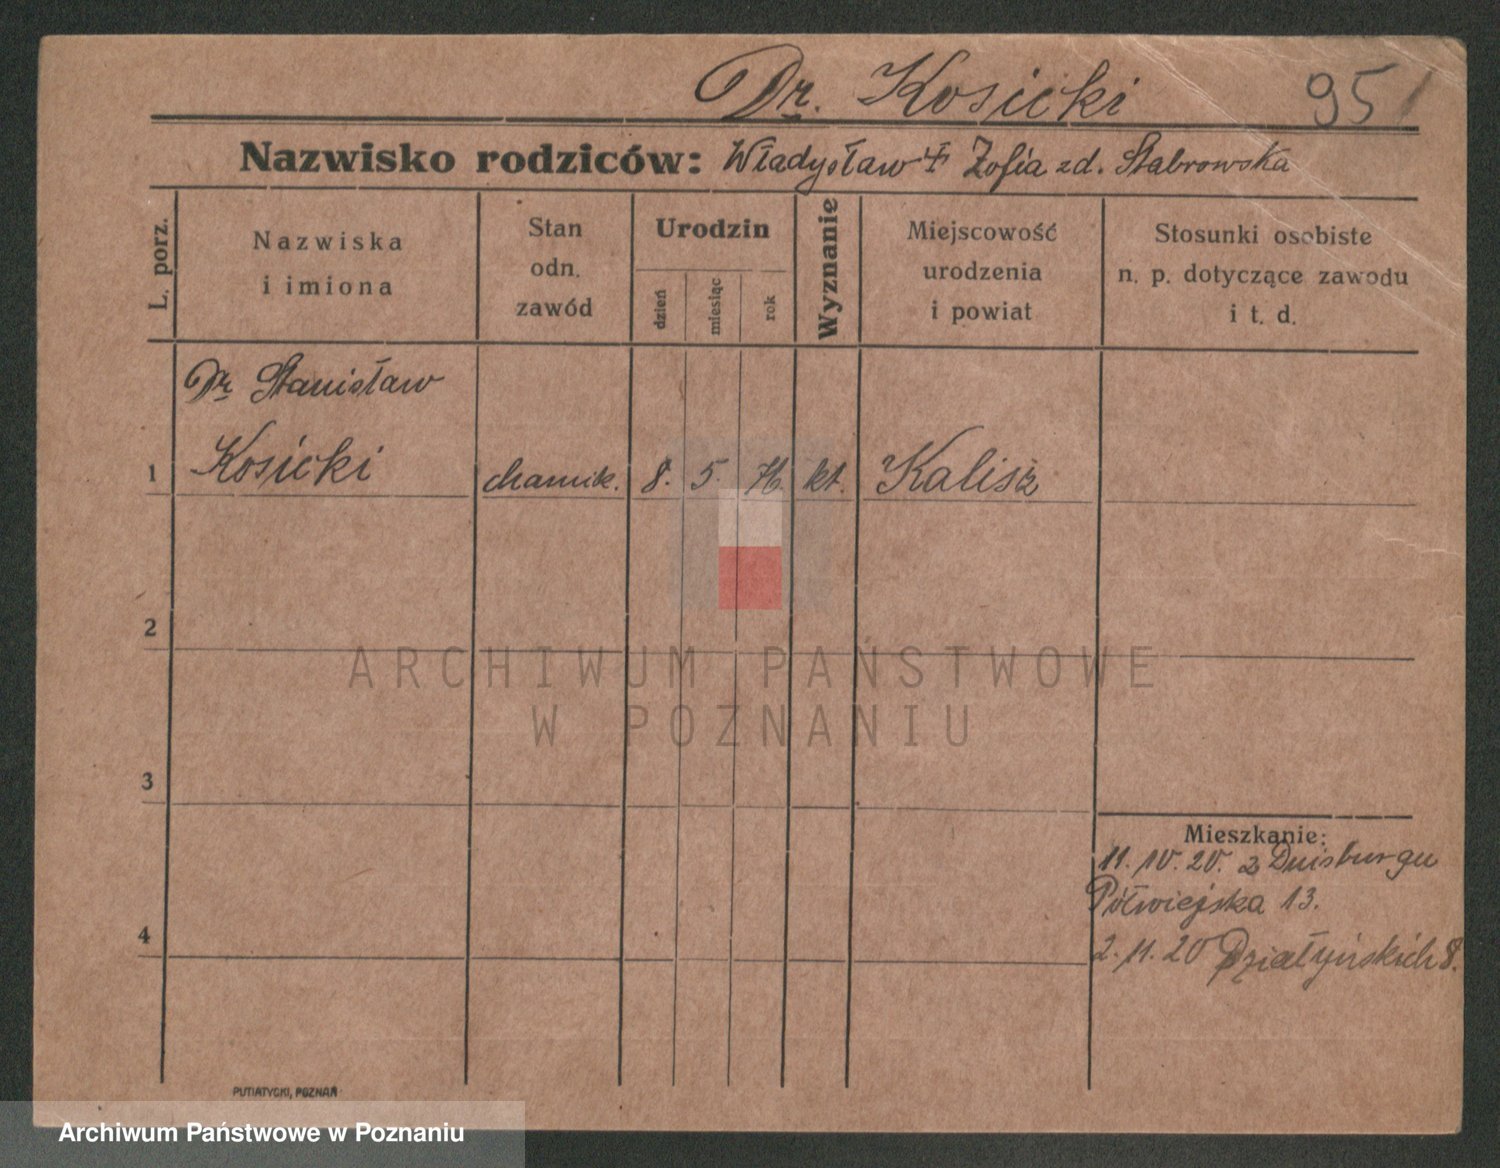 Dr. Kosicki 95
Nazwisko rodziców: Władysław + Zofia zd. Stabrowska
L. porz.
Nazwiska
i imiona
Stan
odn.
zawód
Urodzin
dzień
miesiąc
rok
Wyznanie
Miejscowość
urodzenia
i powiat
Stosunki osobiste
n. p. dotyczące zawodu
i t. d.
Dr Stanisław
1 Kosicki chemik. 8. 5. 76 kt. Kalisz
2
3
Mieszkanie:
11. 10. 20. z Duisburgu
Półwiejska 13.
4
2. 11. 20 Działyńskich 8.
PUTIATYCKI, POZNAŃ
ARCHIWUM PAŃSTWOWE
W POZNANIU
Archiwum Państwowe w Poznaniu